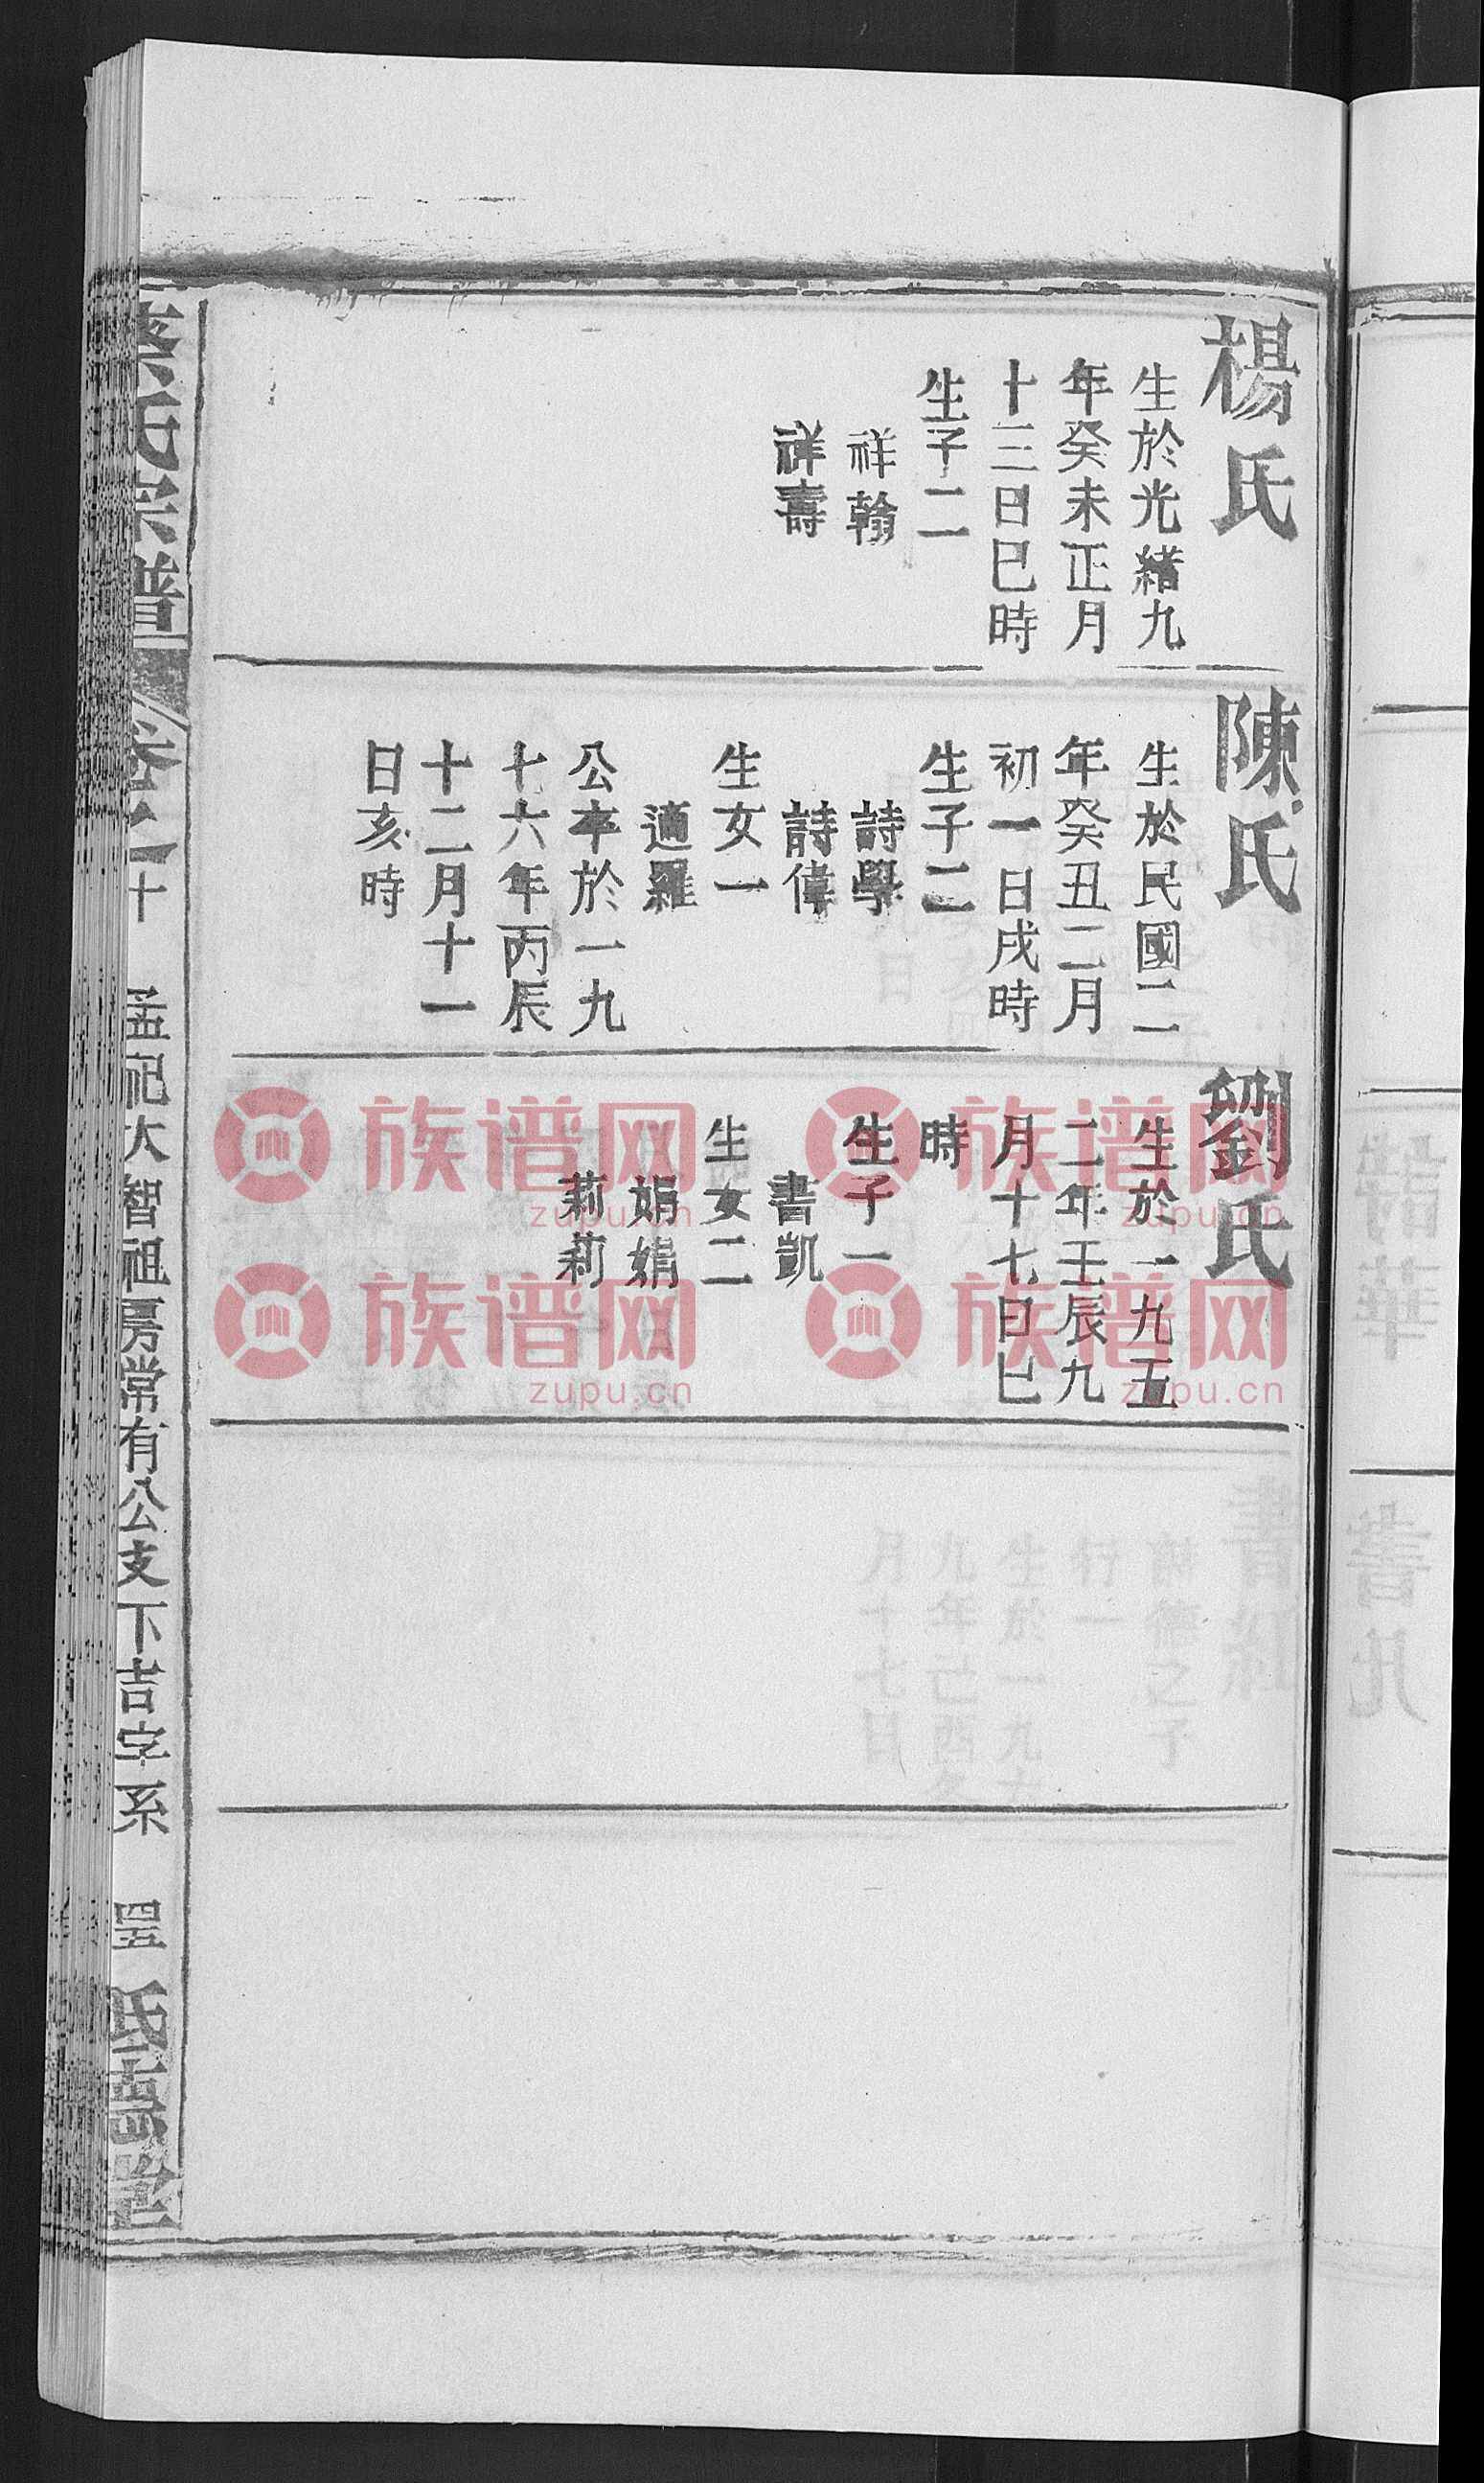 楊氏
生於光緒九
年癸未正月
十三日巳時
生子二
祥翰
祥壽
陳氏
生於民國二
年癸丑二月
初一日戌時
生子二
詩學
詩偉
生女一
適羅
公卒於一九
七六年丙辰
十二月十一
日亥時
劉氏
生於一九五
二年壬辰九
月十七日巳
時
生子一
書凱
生女二
娟娟
莉莉
氏宗譜
孟祀大智祖房常有公支下吉字系
四五
族谱网
zupu.cn
族谱网
zupu.cn
族谱网
zupu.cn
族谱网
zupu.cn